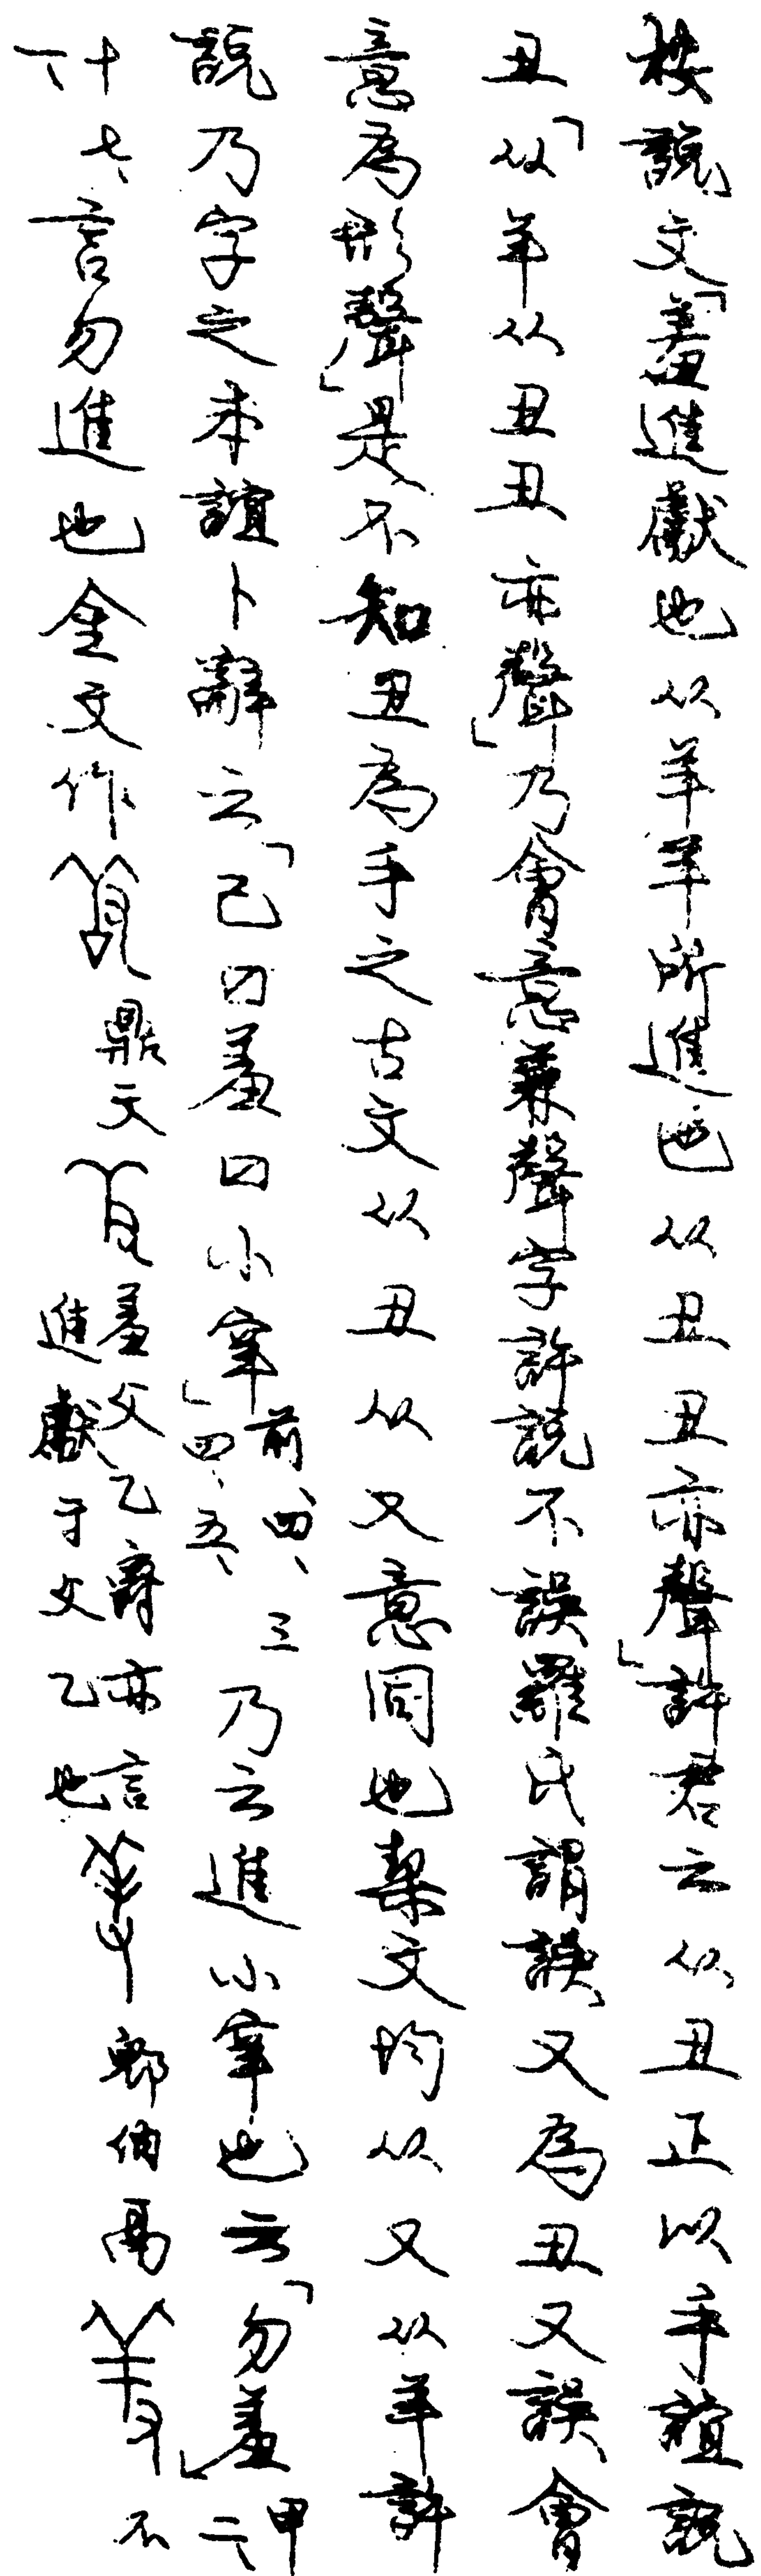 按說文「羞進獻也从羊羊所進也从丑丑亦聲」許君云从丑正以手誼說
丑「从羊从丑丑亦聲」乃會意兼聲字許說不誤羅氏謂誤又為丑又誤會
意為形聲」是不知丑為手之古文从丑从又意同也栔文均从又从羊許
說乃字之本誼卜辭云「己囗羞囗小𡩜」前、四、三四、五、乃云進小𡩜也云「勿羞」甲二、
一、十七、言勿進也金文作鼎文羞父乙爵亦言進獻于父乙也鬲不